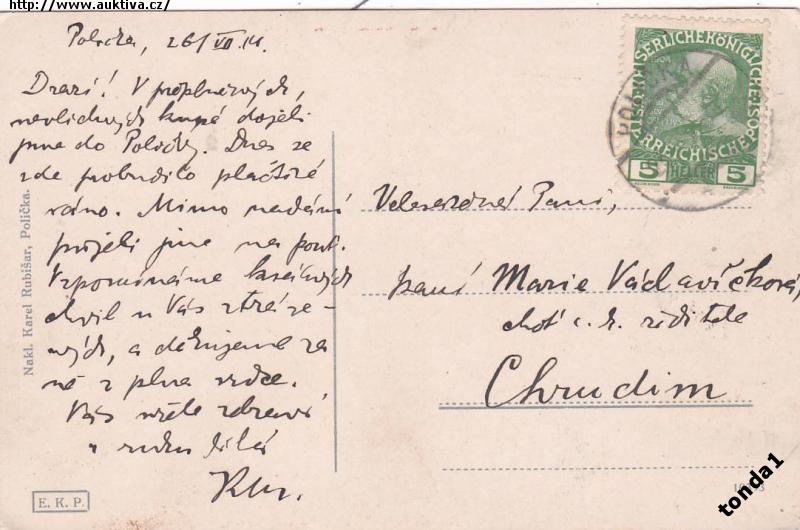 http://www.auktiva.cz/
Polička, 26/VII 14.
Drazí! V přeplněných,
nevlídných kupé dojeli
jsme do Poličky. Dnes se
zde probudilo plačtivé
ráno. Mimo nadání
projeli jsme na pout.
Vzpomínáme krásných
chvil u Vás ztráve-
ných, a děkujeme za
ně z plna srdce.
Vás vřele zdraví
a ruku líbá
Velevážená Paní,
paní Marie Václavíčková,
choť c. k. ředitele
Chrudim
Nakl. Karel Rubišar, Polička.
E. K. P.
KAISERLICHE KÖNIGLICHE ÖSTERREICHISCHE POST
5 HELLER 5
POLIČKA
tonda1